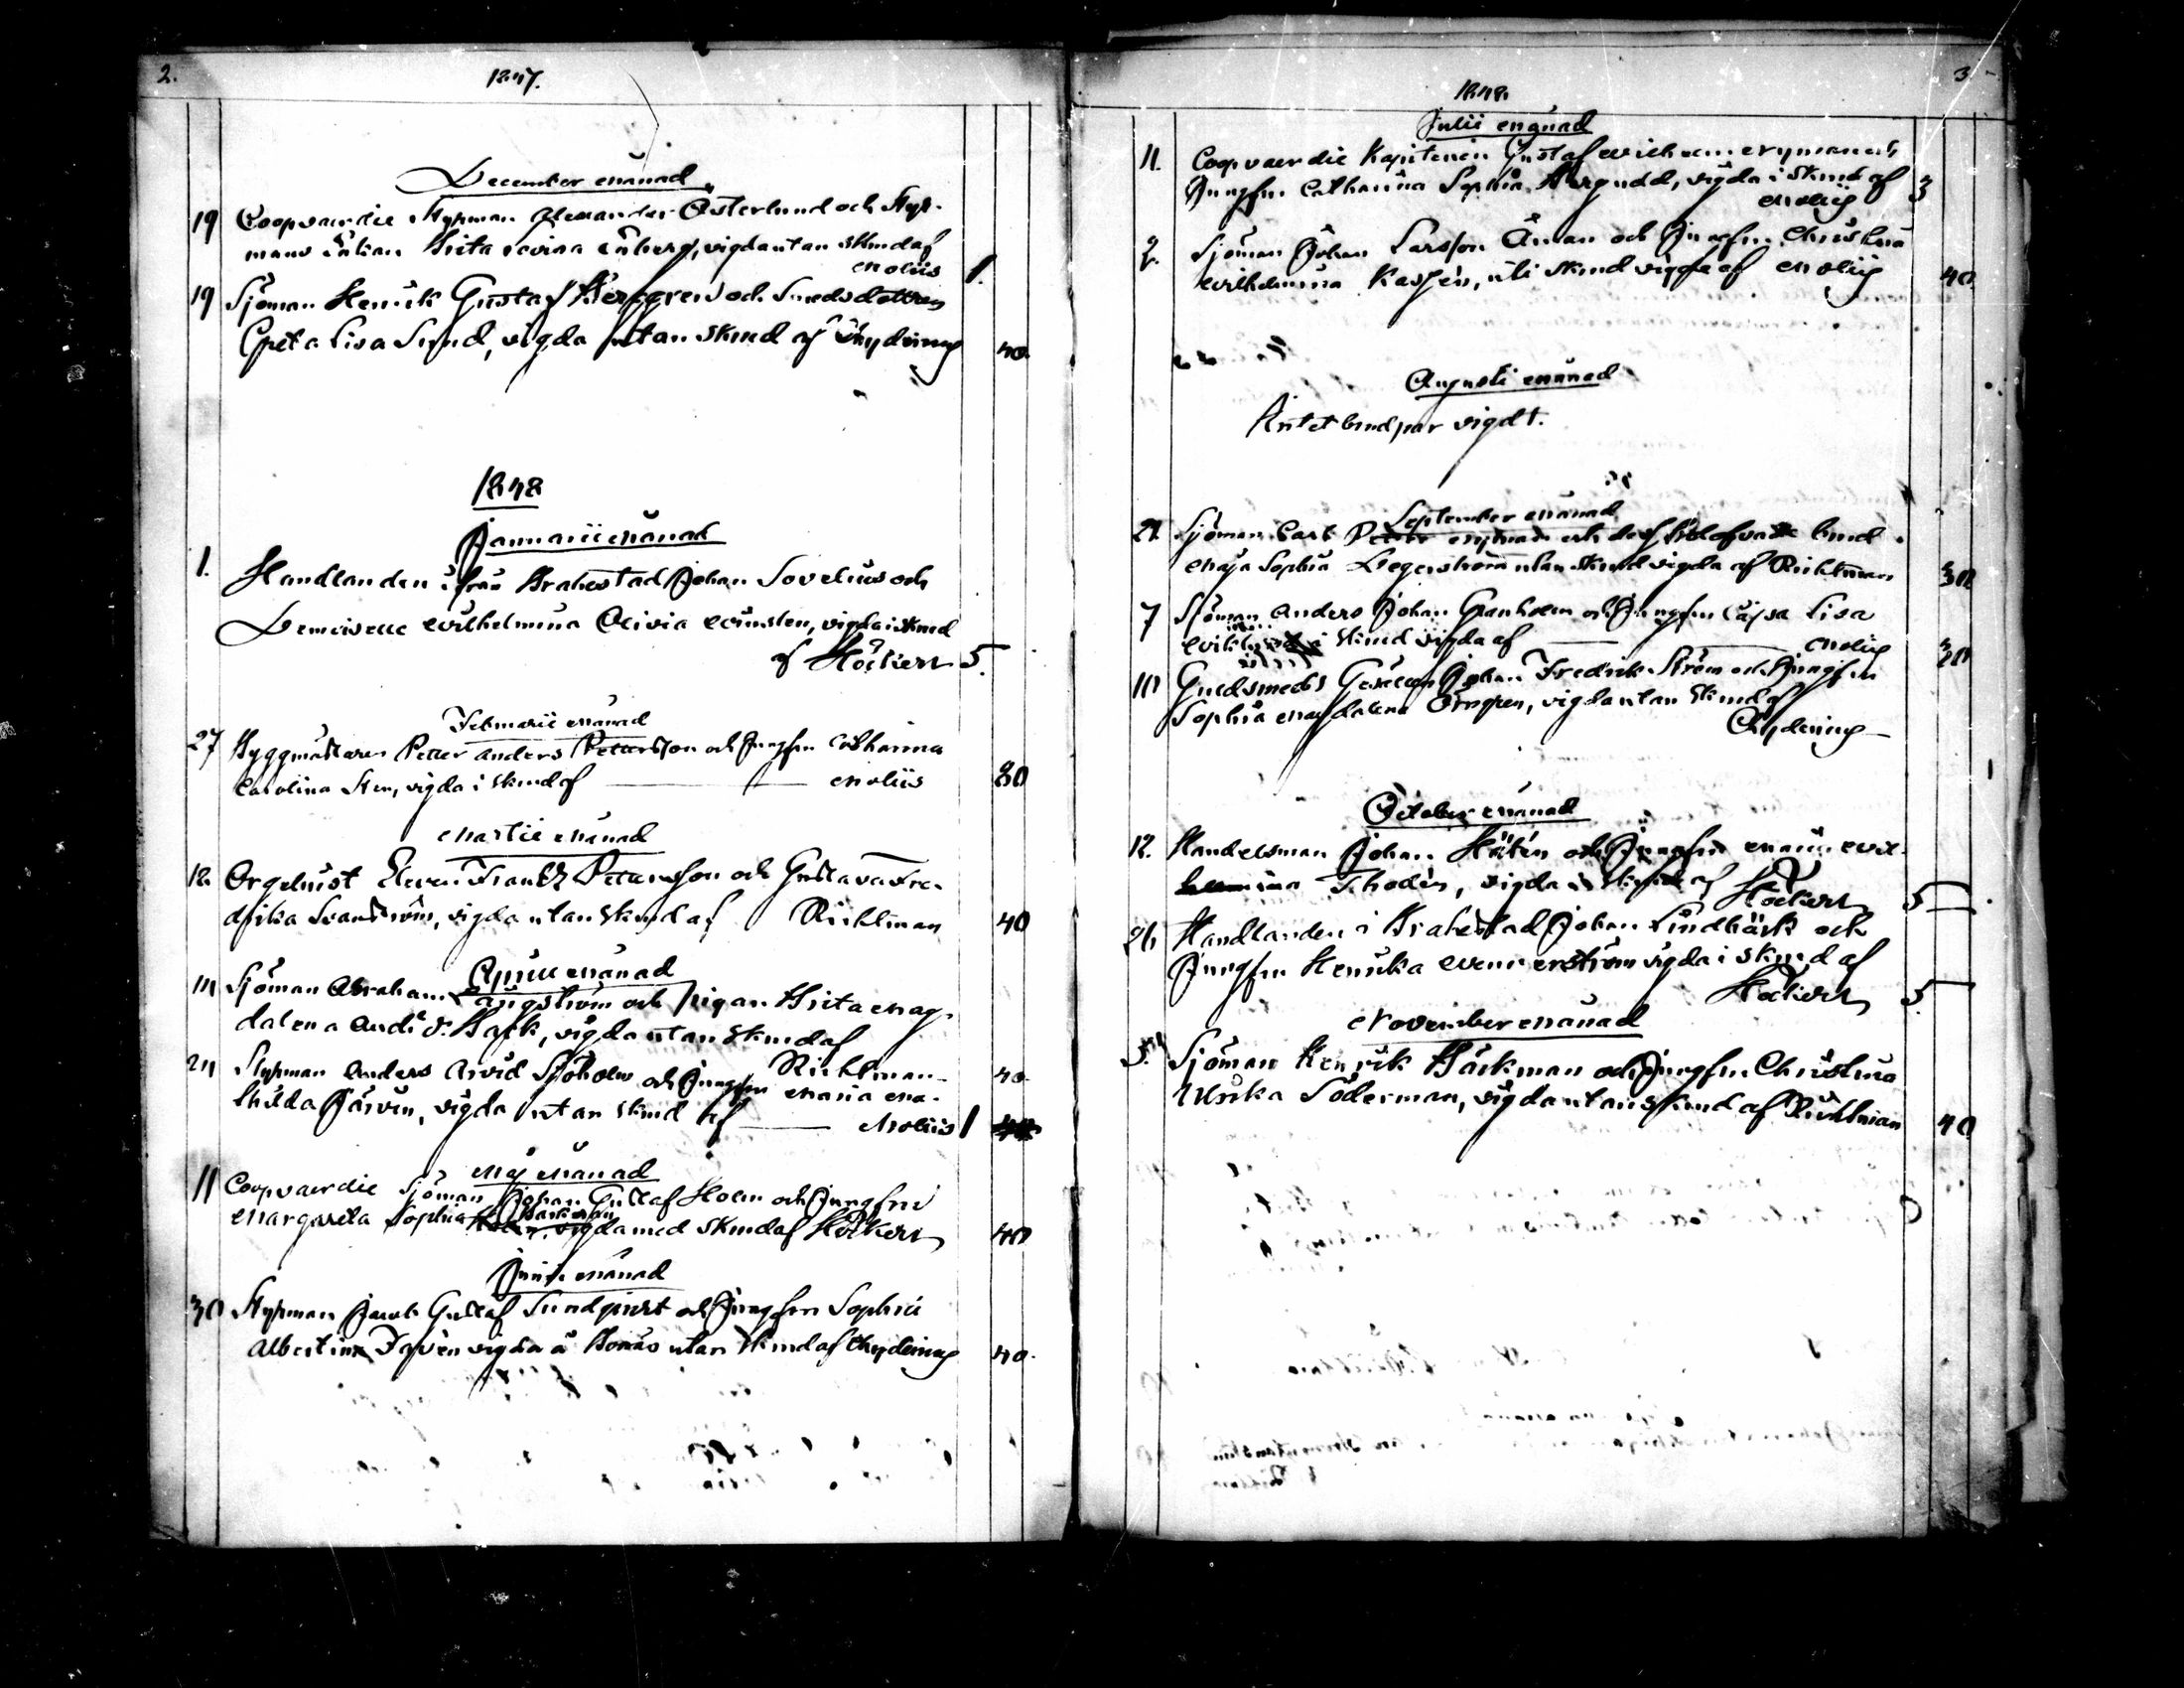 2.
1847.
December månad
19 Coopvaerdie Styrman Alexander Österlund och Styr-
mans Enkan Brita Lovisa Enberg, vigda utan Skrud af
Molliis 1.
19 Sjöman Henrik Gustaf Berggren och Smedsdottren
Greta Lisa Lund, vigda utan Skrud af Chydenius 40.
1848
Januarii månad
1. Handlanden ifrån Brahestad Johan Sovelius och
Demoiselle Wilhelmina Olivia, vigda i Skrud
af Höckert 5.
Februarii månad
27 Byggmästaren Petter Anders Pettersson och Jungfru Catharina
Carolina Sten, vigda i Skrud af Molliis 80
Martii månad
12 Orgelnist Eleven Frantz Pettersson och Gustava Fre-
drika Svanström, vigda utan Skrud af Richtman 40
April månad
10 Sjöman Abraham Långström och pigan Brita Mag-
dalena And: d: Back, vigda utan Skrud af
Richtman 40.
24 Styrman Anders Arvid Sjöholm och Jungfru Maria Ma-
thilda Järvin, vigda utan Skrud af Molliis 1
Maj månad
11 Coopvaerdie Sjöman Johan Gustaf Holm och Jungfru
Margareta Sophia Backman vigda med Skrud af Höckert 40
Junii månad
30 Styrman Jacob Gustaf Sundqvist och Jungfru Sophia
Albertina vigda å Bonäs utan Skrud af Chydenius 40.
3
1848.
Julii månad
11. Coopvaerdie Kapitenen Gustaf Wilhelm Nyman och
Jungfru Catharina Sophia, vigda i Skrud af
Molliis 3
2. Sjöman Johan Larsson Åman och Jungfru Christina
Wilhelmina, uti Skrud vigde af Molliis 40
Augusti månad
Intet brudpar vigdt.
September månad
21 Sjöman Carl Petter Nyman och dess trolofvade brud
Maja Sophia Degerström utan Skrud vigda af Richtman
7 Sjöman Anders Johan Granholm och Jungfru Cajsa Lisa
i Skrud vigda af Molliis
10 Guldsmeds Gesällen Johan Fredrik Ström och Jungfru
Sophia Magdalena Örngren, vigda utan Skrud af
Chydenius
October månad
12. Handelsman Johan Hätén och Jungfru Maria Wil-
helmina Thodén, vigda i Skrud af Höckert 5
26 Handlanden i Brahestad Johan Lindbäck och
Jungfru Henrika Wennerström vigda i Skrud af
Höckert 5
November månad
5. Sjöman Henrik Bäckman och Jungfru Christina
Ulrika Söderman, vigda utan Skrud af Richtman 40